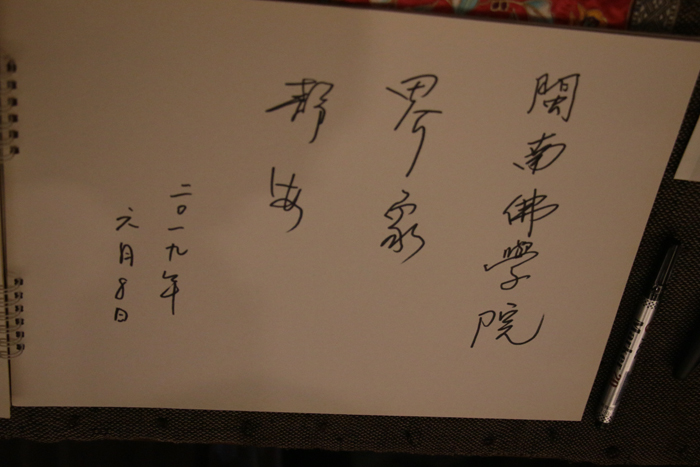 閩南佛學院
界象
静海
二〇一九年
六月8日